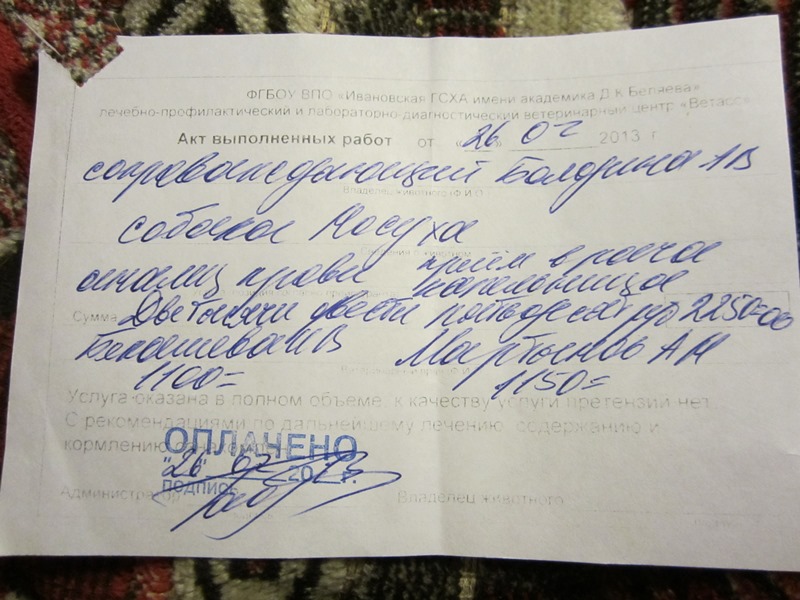 ФГБОУ ВПО «Ивановская ГСХА имени академика Д.К.Беляева»
лечебно-профилактический и лабораторно-диагностический ветеринарный центр «Ветасс»
Акт выполненных работ от «26» 07 2013 г
сопровождающий Болдина
Владелец животного (Ф.И.О.)
собака
анализ крови приём врача
капельница
Сумма Две тысячи двести пятьдесят руб 2250=00
Мартынов АН
1100= 1150=
Услуга оказана в полном объеме, к качеству услуги претензий нет.
С рекомендациями по дальнейшему лечению, содержанию и
кормлению
ОПЛАЧЕНО
"26" 07 201
ПОДПИСЬ
Администратор Владелец животного